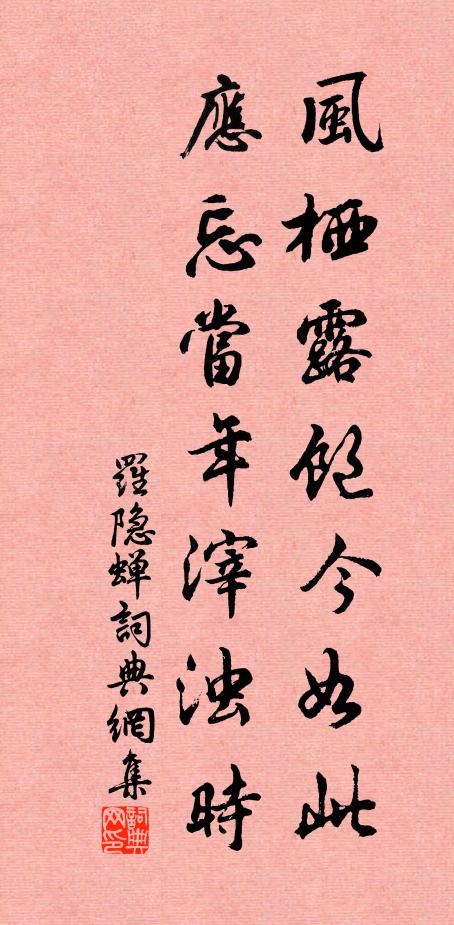 風栖露飽今如此
應忘當年滓浊時
羅隐蝉詞典網集
詞典网印